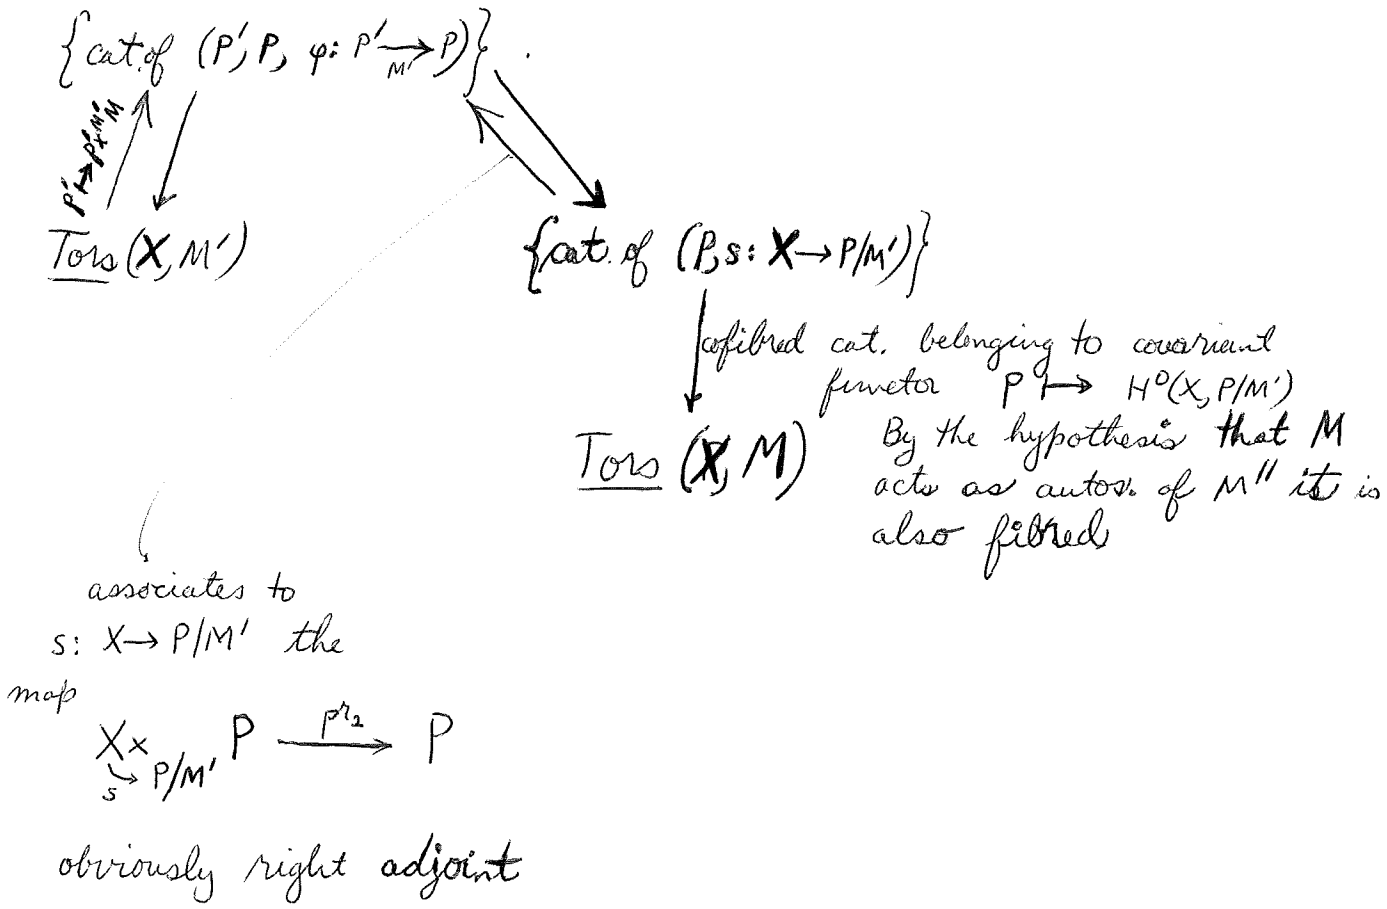 {cat. of (P', P, φ: P' →_{M'} P)} .
P' ↦ P' ×^{M'} M
Tors (X, M')
{cat. of (P, s: X → P/M')}
cofibred cat. belonging to covariant
functor P ↦ H⁰(X, P/M')
Tors (X, M)
By the hypothesis that M
acts as autos. of M'' it is
also fibred
associates to
s: X → P/M' the
map
X ×_{P/M'} P → P
pr₂
s
obviously right adjoint